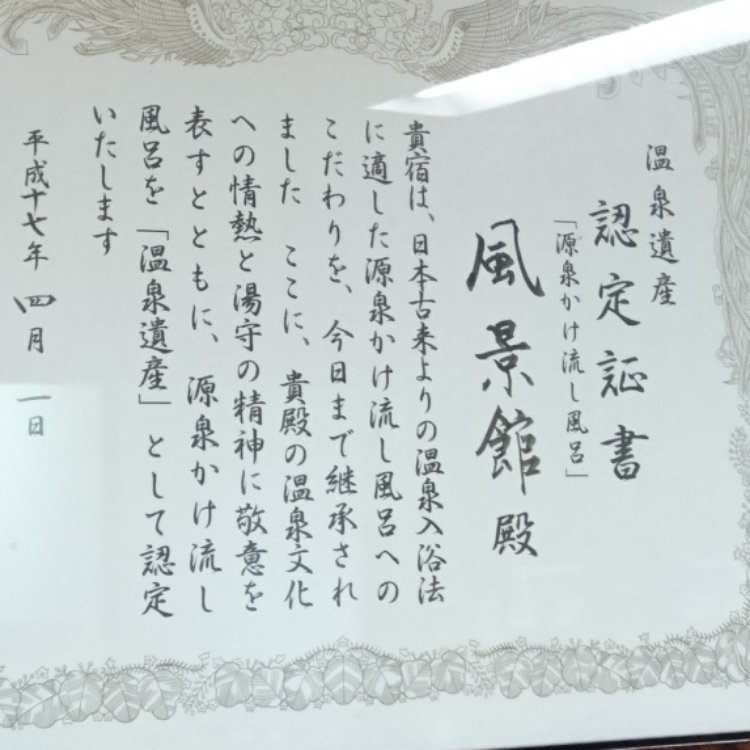 温泉遺産
認定証書
「源泉かけ流し風呂」
風景館殿
貴宿は、日本古来よりの温泉入浴法
に適した源泉かけ流し風呂への
こだわりを、今日まで継承され
ました　ここに、貴殿の温泉文化
への情熱と湯守の精神に敬意を
表すとともに、源泉かけ流し
風呂を「温泉遺産」として認定
いたします
平成十七年四月一日